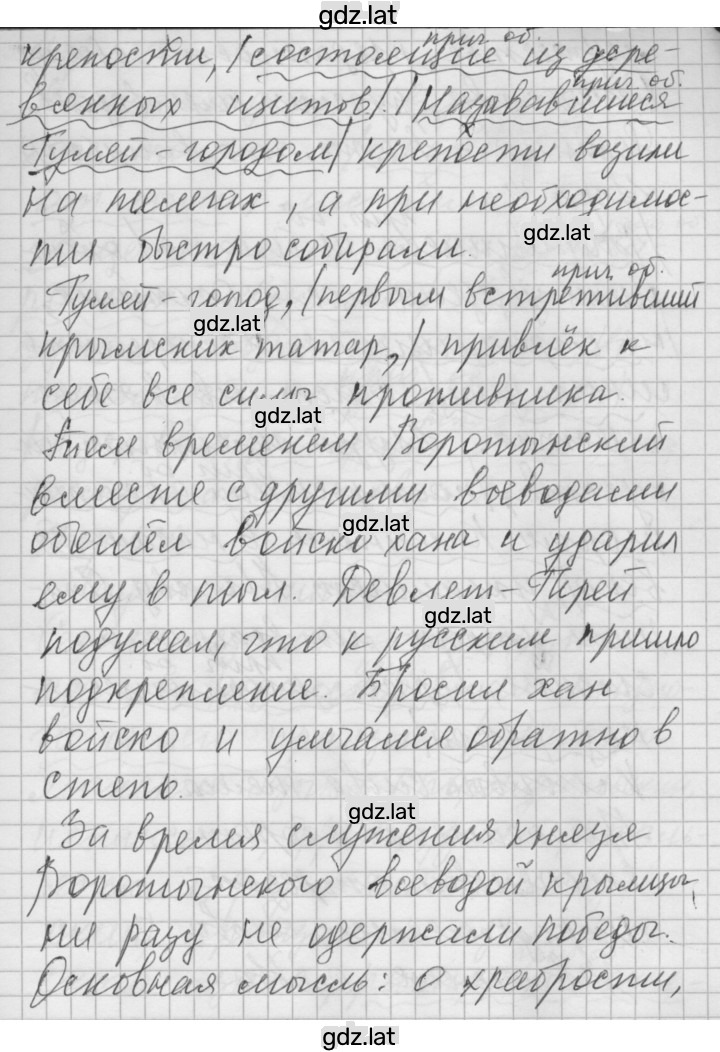 gdz.lat
прич. об.
крепости, |состоящие из дере-
прич. об.
вянных щитов|. |Называвшиеся
Гуляй-городом| крепости возили
на телегах, а при необходимос-
ти быстро собирали.
gdz.lat
прич. об.
Гуляй-город, |первым встретивший
gdz.lat
крымских татар,| привлёк к
себе все силы противника.
gdz.lat
Тем временем Воротынский
вместе с другими воеводами
gdz.lat
обошёл войско хана и ударил
ему в тыл. Девлет-Гирей
gdz.lat
подумал, что к русским пришло
подкрепление. Бросил хан
войско и умчался обратно в
степь.
gdz.lat
За время служения князя
Воротынского воеводой крымцы
ни разу не одержали победы.
Основная мысль: о храбрости,
gdz.lat